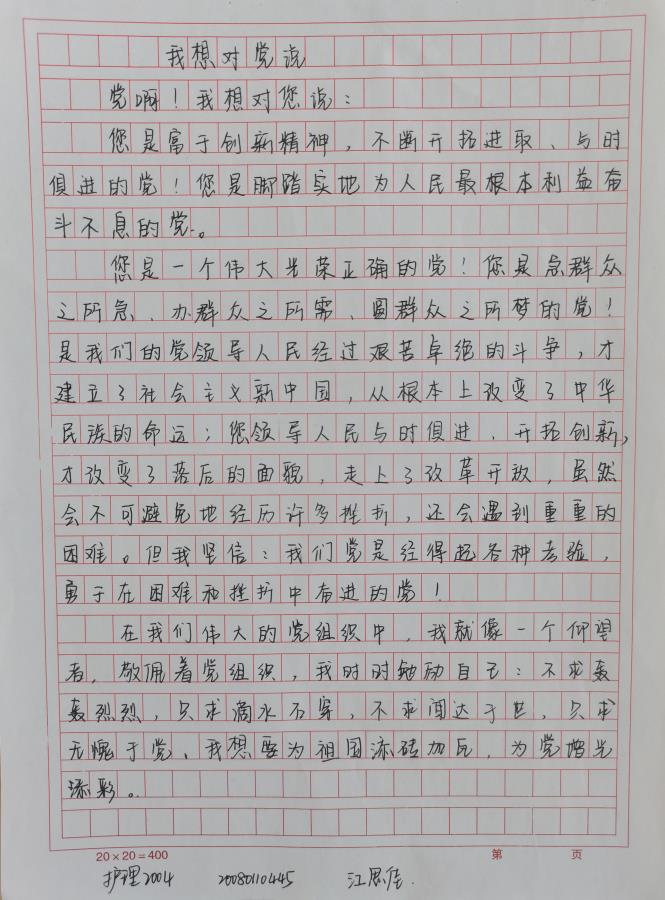 我想对党说
党啊！我想对您说：
您是富于创新精神，不断开拓进取、与时
俱进的党！您是脚踏实地为人民最根本利益奋
斗不息的党。
您是一个伟大光荣正确的党！您是急群众
之所急、办群众之所需、圆群众之所梦的党！
是我们的党领导人民经过艰苦卓绝的斗争，才
建立了社会主义新中国，从根本上改变了中华
民族的命运；您领导人民与时俱进、开拓创新，
才改变了落后的面貌，走上了改革开放，虽然
会不可避免地经历许多挫折，还会遇到重重的
困难。但我坚信：我们党是经得起各种考验，
勇于在困难和挫折中奋进的党！
在我们伟大的党组织中，我就像一个仰望
者，敬佩着党组织，我时时勉励自己：不求轰
轰烈烈，只求滴水石穿，不求闻达于世，只求
无愧于党、我想要为祖国添砖加瓦，为党增光
添彩。
20×20=400 第 页
护理2004 20080110445 江思佳